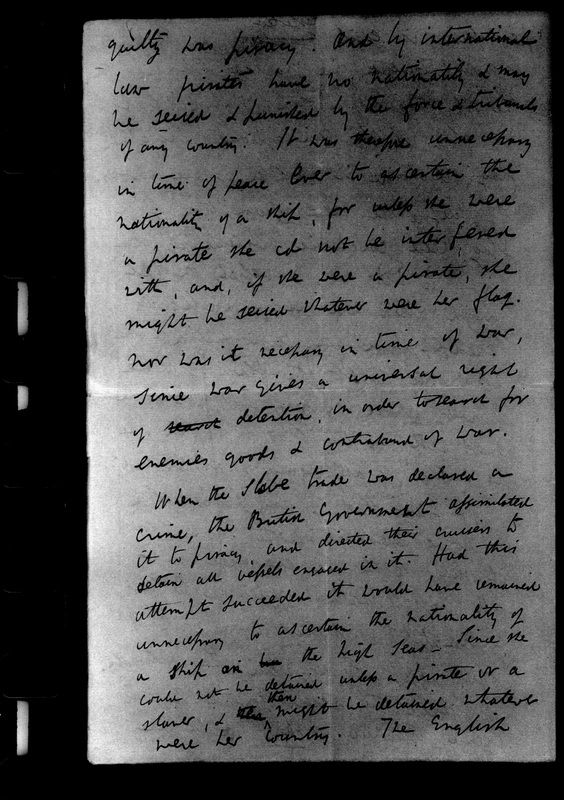 guilty was piracy. And by international
law pirates have no nationality & may
be seized & punished by the force & tribunals
of any country. It was therefore unnecessary
in time of peace Ever to ascertain the
nationality of a ship, for unless she were
a pirate she cd not be interfered
with, and, if she were a pirate, she
might be seized whatever were her flag.
nor was it necessary in time of war,
Since war gives a universal right
of search detention, in order to search for
enemies goods & contraband of war.
When the Slave trade was declared a
crime, the British Government assimilated
it to piracy, and directed their cruisers to
detain all vessels engaged in it. Had this
attempt succeeded it would have remained
unnecessary to ascertain the nationality of
a ship on the high seas – Since she
could not be detained unless a pirate or a
slaver, & then might be detained whatever
were her Country. The English